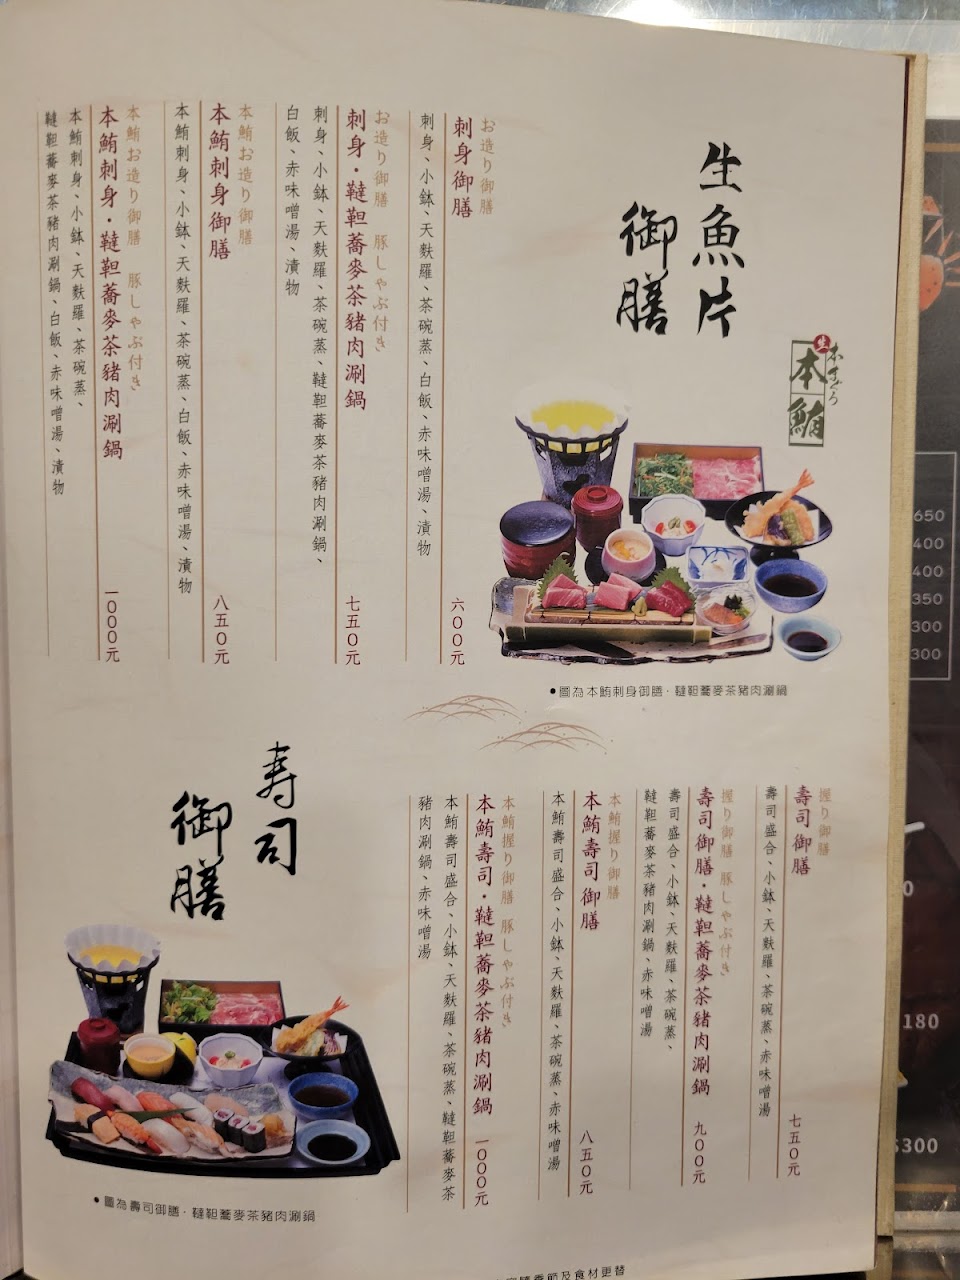 生魚片
御膳
生
本鮪
本まぐろ
お造り御膳
刺身御膳
六００元
刺身、小鉢、天麩羅、茶碗蒸、白飯、赤味噌湯、漬物
お造り御膳　豚しゃぶ付き
刺身・韃靼蕎麥茶豬肉涮鍋
七五０元
刺身、小鉢、天麩羅、茶碗蒸、韃靼蕎麥茶豬肉涮鍋、
白飯、赤味噌湯、漬物
本鮪お造り御膳
本鮪刺身御膳
八五０元
本鮪刺身、小鉢、天麩羅、茶碗蒸、白飯、赤味噌湯、漬物
本鮪お造り御膳　豚しゃぶ付き
本鮪刺身・韃靼蕎麥茶豬肉涮鍋
一０００元
本鮪刺身、小鉢、天麩羅、茶碗蒸、
韃靼蕎麥茶豬肉涮鍋、白飯、赤味噌湯、漬物
●圖為本鮪刺身御膳・韃靼蕎麥茶豬肉涮鍋
寿司
御膳
握り御膳
壽司御膳
七五０元
壽司盛合、小鉢、天麩羅、茶碗蒸、赤味噌湯
握り御膳　豚しゃぶ付き
壽司御膳・韃靼蕎麥茶豬肉涮鍋
九００元
壽司盛合、小鉢、天麩羅、茶碗蒸、
韃靼蕎麥茶豬肉涮鍋、赤味噌湯
本鮪握り御膳
本鮪壽司御膳
八五０元
本鮪壽司盛合、小鉢、天麩羅、茶碗蒸、赤味噌湯
本鮪握り御膳　豚しゃぶ付き
本鮪壽司・韃靼蕎麥茶豬肉涮鍋
一０００元
本鮪壽司盛合、小鉢、天麩羅、茶碗蒸、韃靼蕎麥茶
豬肉涮鍋、赤味噌湯
●圖為壽司御膳・韃靼蕎麥茶豬肉涮鍋
隨季節及食材更替
650
400
400
350
300
300
180
$300